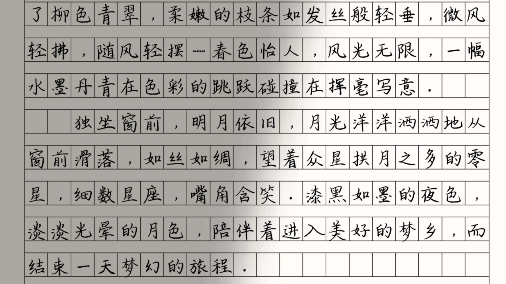 了柳色青翠，柔嫩的枝条如发丝般轻垂，微风
轻拂，随风轻摆一春色怡人，风光无限，一幅
水墨丹青在色彩的跳跃碰撞在挥毫写意．
独坐窗前，明月依旧，月光洋洋洒洒地从
窗前滑落，如丝如绸，望着众星拱月之多的零
星，细数星座，嘴角含笑．漆黑如墨的夜色，
淡淡光晕的月色，陪伴着进入美好的梦乡，而
结束一天梦幻的旅程．